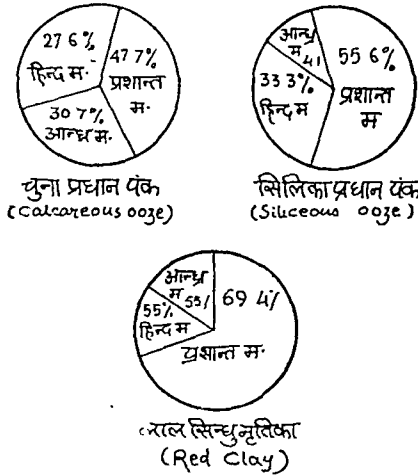 27 6%
हिन्द म.
47 7%
प्रशान्त
म.
30 7%
आन्ध्र म.
चुना प्रधान पंक
(Calcareous ooze)
आन्ध्र
म 41
33 3%
हिन्द म
55 6%
प्रशान्त
म
सिलिका प्रधान पंक
(Siliceous ooze)
आन्ध्र
म 55%
55%
हिन्द म
69 4%
प्रशान्त म.
राल सिन्धु मृतिका
(Red Clay)